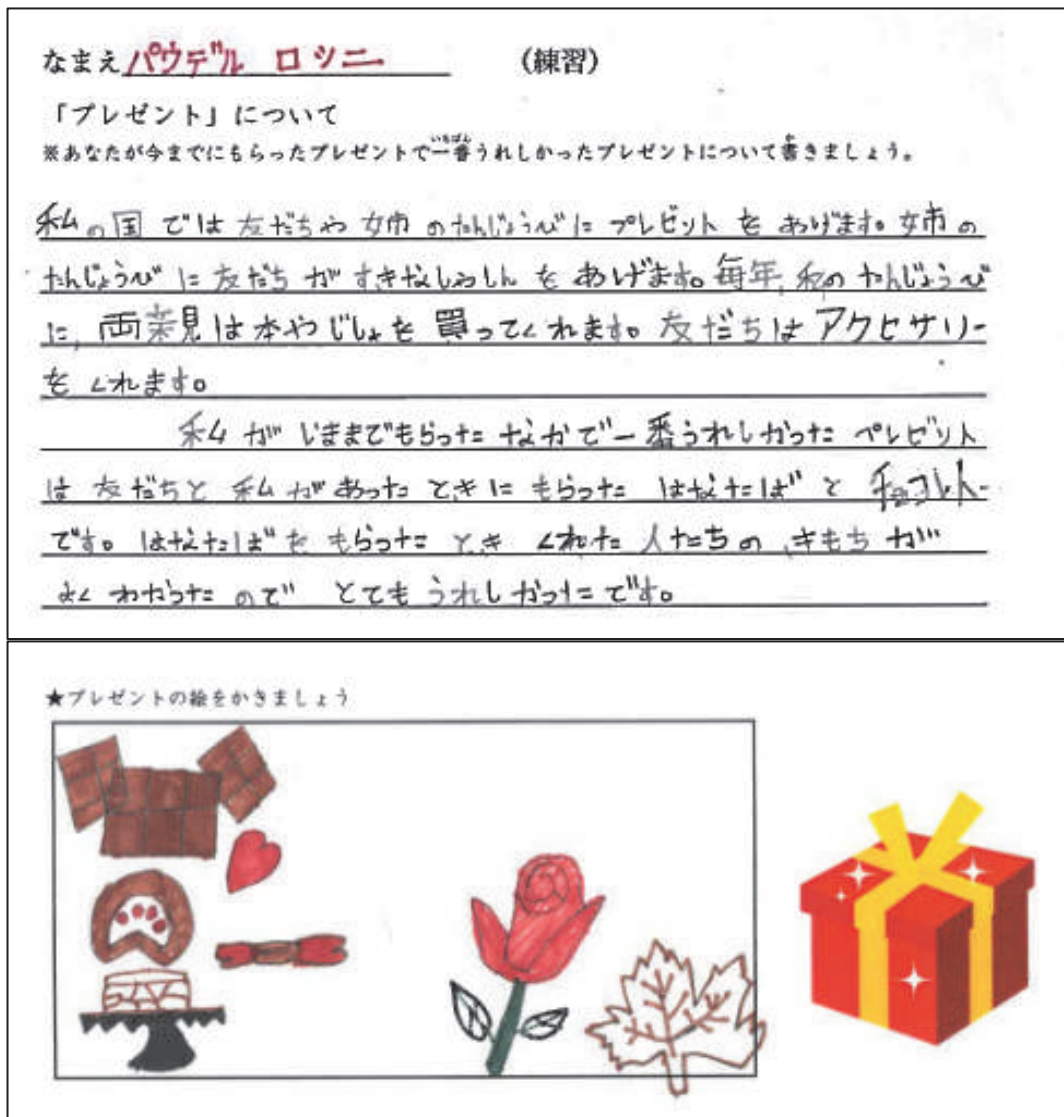 なまえ パウデル ロツニ (練習)
「プレゼント」について
※あなたが今までにもらったプレゼントで一番うれしかったプレゼントについて書きましょう。
私の国では友だちや姉のたんじょうびにプレゼットをあげます。姉の
たんじょうびに友だちがすきなしゃしんをあげます。毎年、私のたんじょうび
に、両親は本やじしょを買ってくれます。友だちはアクセサリー
をくれます。
私がいままでもらったなかで一番うれしかったペレゼント
は友だちと私があったときにもらったはなたばとチョコレート
です。はなたばをもらったときくれた人たちのきもちが
よくわかったのでとてもうれしかったです。
★プレゼントの絵をかきましょう